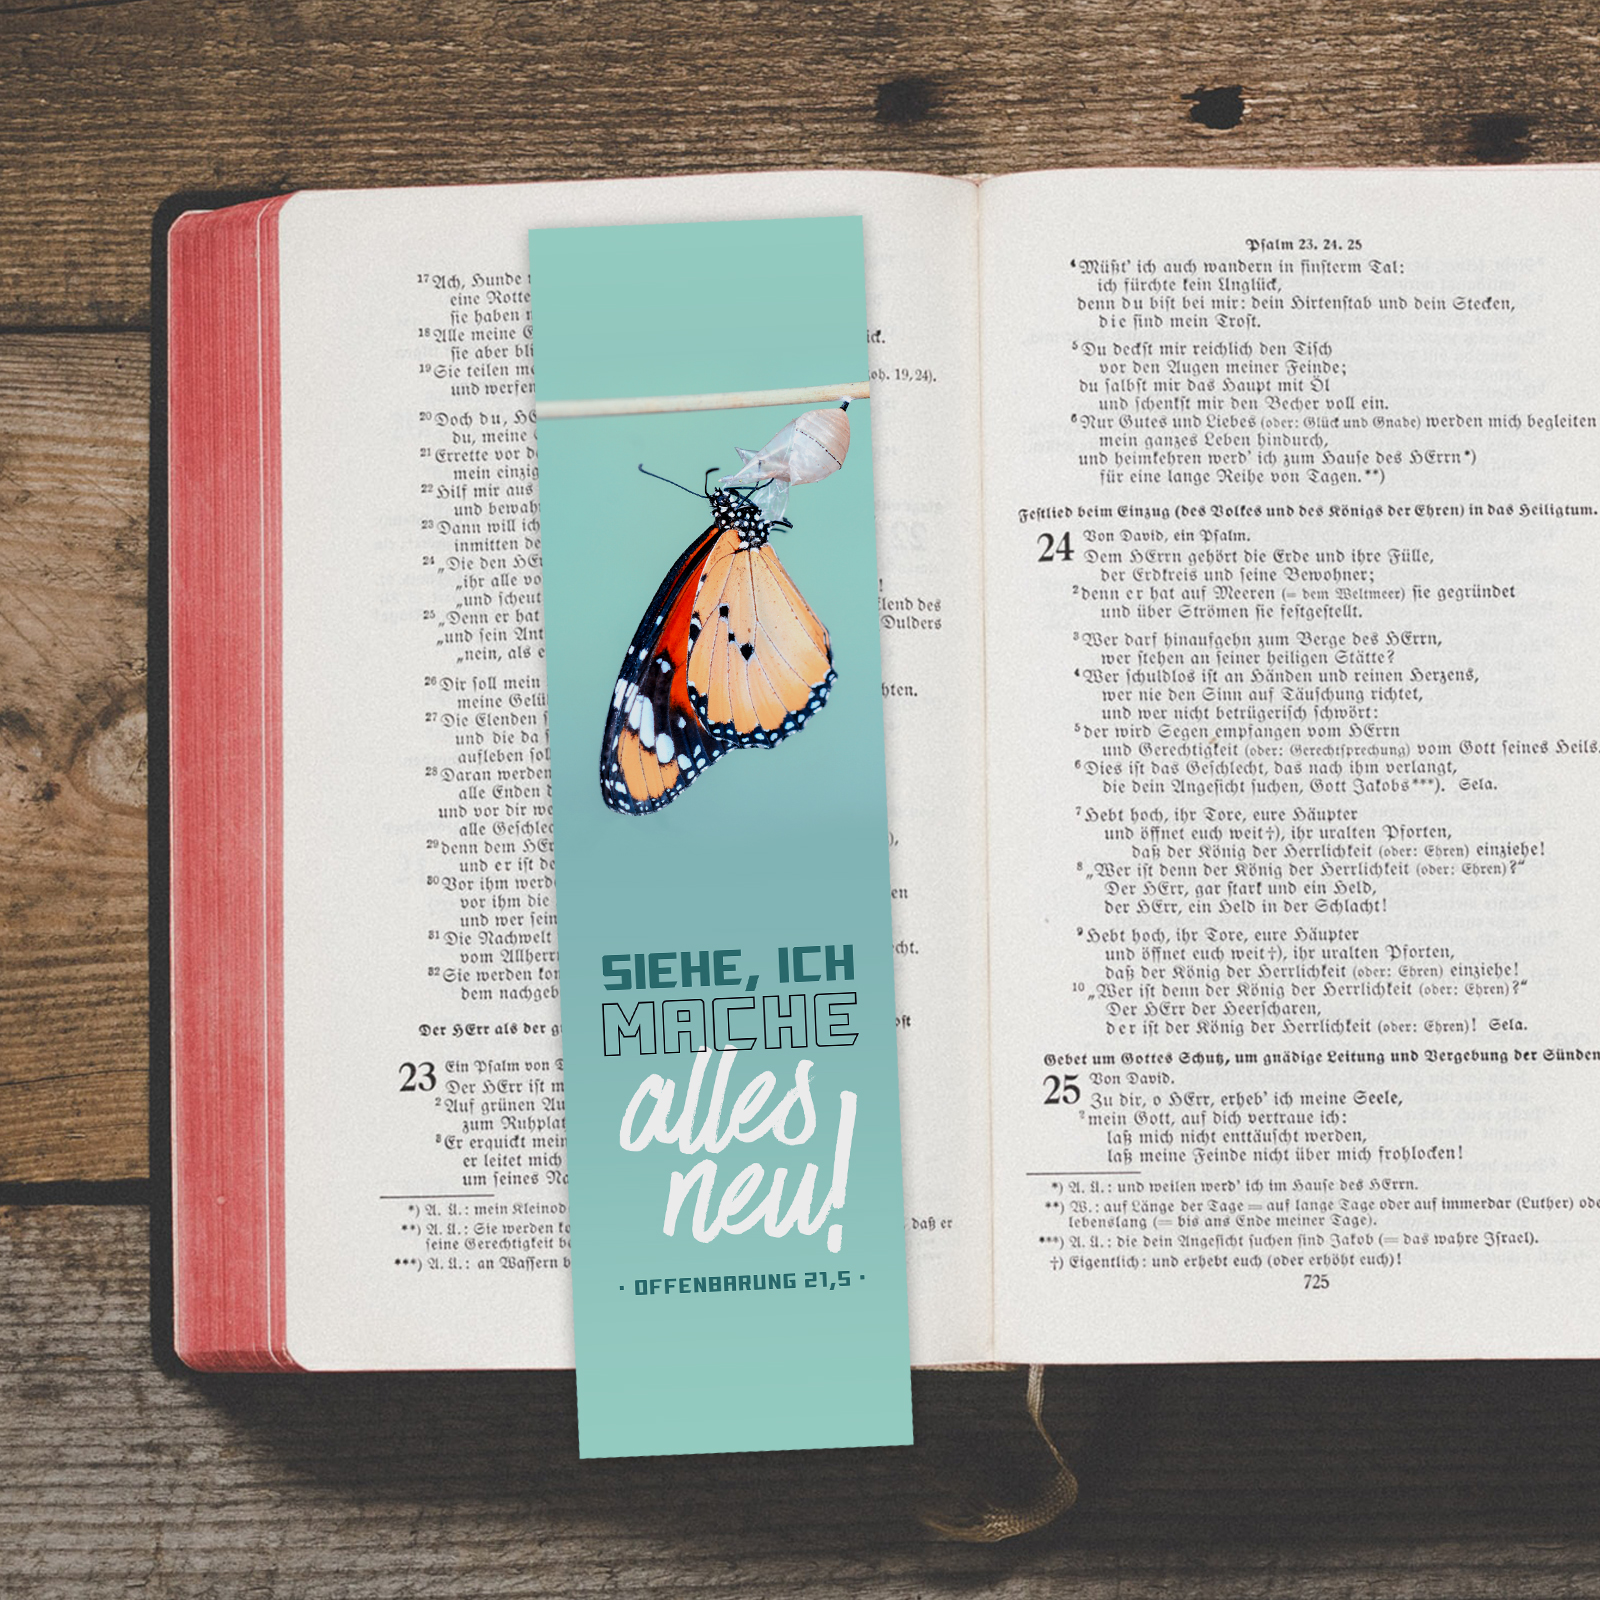 17 Ach, Hunde
eine Rotte
sie haben
18 Alle meine
sie aber
19 Sie teilen
und werfen
20 Doch du,
du, meine
21 Errette vor
mein einzig
22 Hilf mir aus
und
23 Dann will ich
inmitten
24 „Die den
„ihr alle
„und scheut
25 „Denn er hat
„und sein
„nein, als
26 Dir soll mein
meine
27 Die Elenden
und die da
aufleben
28 Daran werden
alle Enden
und vor dir
alle
29 denn dem
und er ist
30 Vor ihm
vor ihm die
und wer
31 Die Nachwelt
vom
32 Sie werden
dem
Der HErr als der
23 Ein Psalm von
Der HErr ist
2 Auf grünen
zum
3 Er erquickt
er leitet mich
um seines
*) A. Ü.: mein
**) A. Ü.: Sie werden
seine Gerechtigkeit
***) A. Ü.: an Wassern
19,24).
Elend des
Dulders
daß er
SIEHE, ICH
MACHE
alles
neu!
· OFFENBARUNG 21,5 ·
Psalm 23. 24. 25
4 Müßt' ich auch wandern in finsterm Tal:
ich fürchte kein Unglück,
denn du bist bei mir: dein Hirtenstab und dein Stecken,
die sind mein Trost.
5 Du deckst mir reichlich den Tisch
vor den Augen meiner Feinde;
du salbst mir das Haupt mit Öl
und schenkst mir den Becher voll ein.
6 Nur Gutes und Liebes (oder: Glück und Gnade) werden mich begleiten
mein ganzes Leben hindurch,
und heimkehren werd' ich zum Hause des HErrn*)
für eine lange Reihe von Tagen.**)
Festlied beim Einzug (des Volkes und des Königs der Ehren) in das Heiligtum.
24 Von David, ein Psalm.
Dem HErrn gehört die Erde und ihre Fülle,
der Erdkreis und seine Bewohner;
2 denn er hat auf Meeren (= dem Weltmeer) sie gegründet
und über Strömen sie festgestellt.
3 Wer darf hinaufgehn zum Berge des HErrn,
wer stehen an seiner heiligen Stätte?
4 Wer schuldlos ist an Händen und reinen Herzens,
wer nie den Sinn auf Täuschung richtet,
und wer nicht betrügerisch schwört:
5 der wird Segen empfangen vom HErrn
und Gerechtigkeit (oder: Gerechtsprechung) vom Gott seines Heils.
6 Dies ist das Geschlecht, das nach ihm verlangt,
die dein Angesicht suchen, Gott Jakobs***). Sela.
7 Hebt hoch, ihr Tore, eure Häupter
und öffnet euch weit†), ihr uralten Pforten,
daß der König der Herrlichkeit (oder: Ehren) einziehe!
8 „Wer ist denn der König der Herrlichkeit (oder: Ehren)?“
Der HErr, gar stark und ein Held,
der HErr, ein Held in der Schlacht!
9 Hebt hoch, ihr Tore, eure Häupter
und öffnet euch weit†), ihr uralten Pforten,
daß der König der Herrlichkeit (oder: Ehren) einziehe!
10 „Wer ist denn der König der Herrlichkeit (oder: Ehren)?“
Der HErr der Heerscharen,
der ist der König der Herrlichkeit (oder: Ehren)! Sela.
Gebet um Gottes Schutz, um gnädige Leitung und Vergebung der Sünden
25 Von David.
Zu dir, o HErr, erheb' ich meine Seele,
2 mein Gott, auf dich vertraue ich:
laß mich nicht enttäuscht werden,
laß meine Feinde nicht über mich frohlocken!
*) A. Ü.: und weilen werd' ich im Hause des HErrn.
**) W.: auf Länge der Tage = auf lange Tage oder auf immerdar (Luther)
lebenslang (= bis ans Ende meiner Tage).
***) A. Ü.: die dein Angesicht suchen sind Jakob (= das wahre Israel).
†) Eigentlich: und erhebt euch (oder erhöht euch)!
725